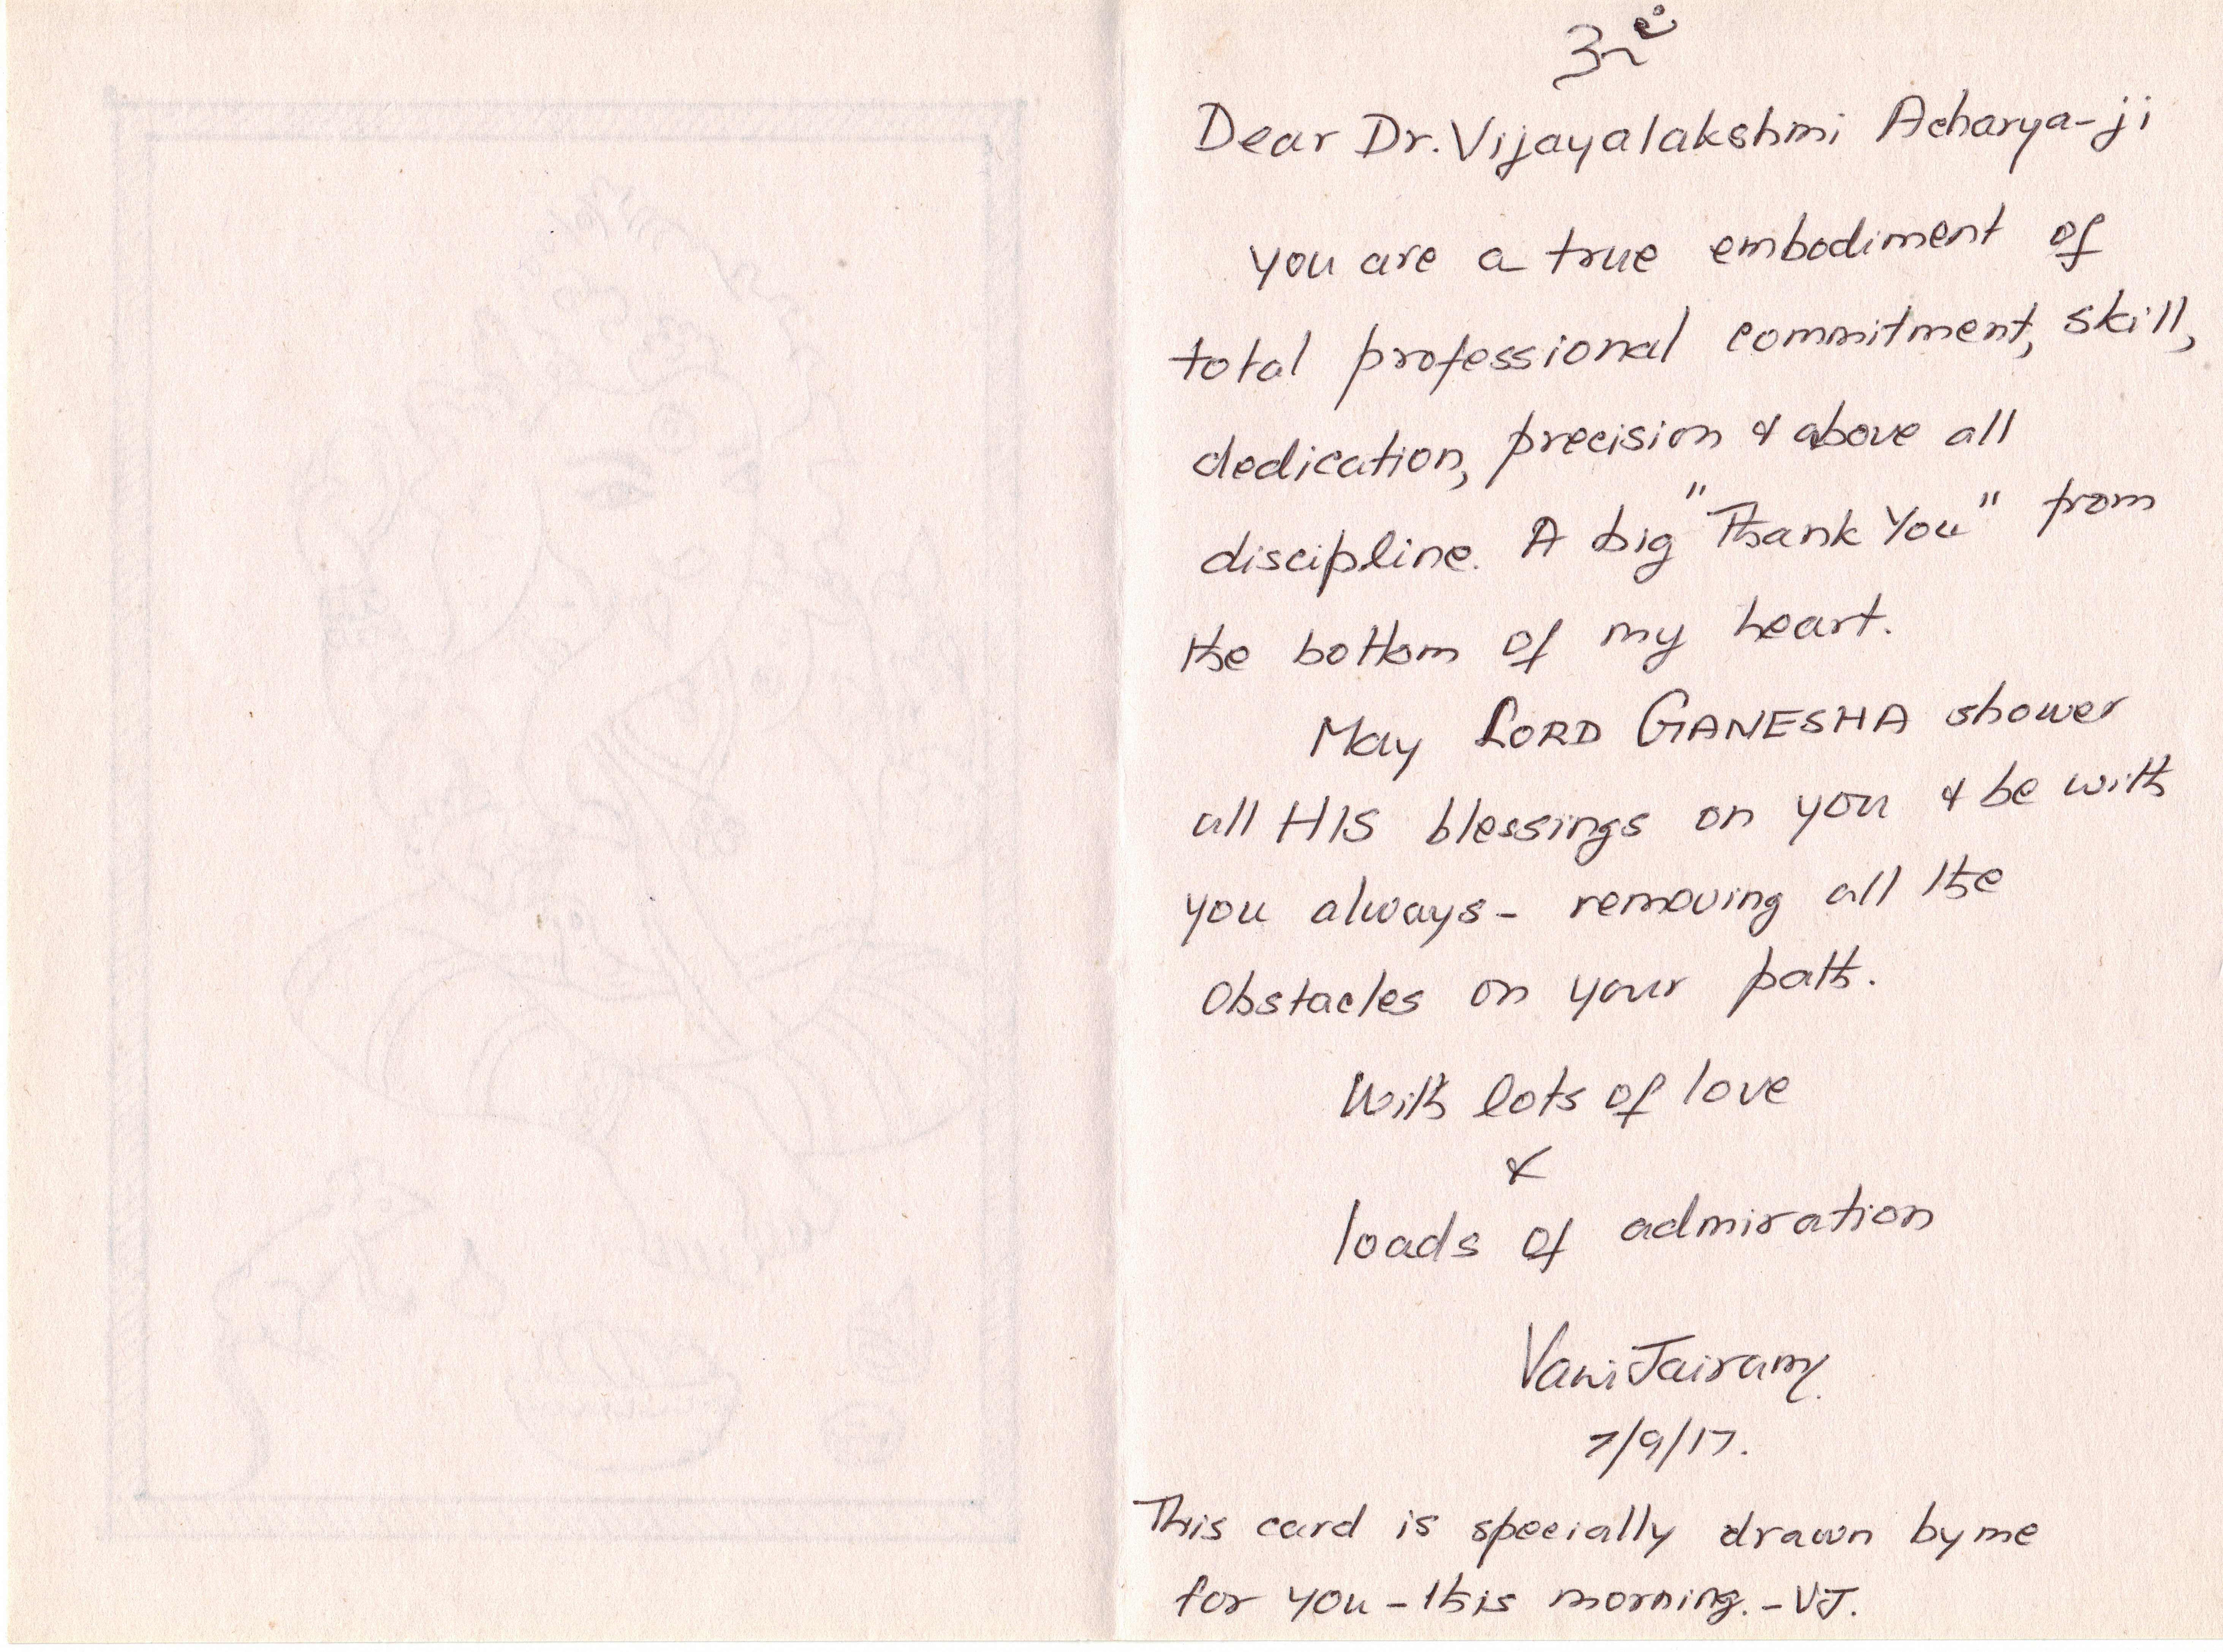 ॐ
Dear Dr. Vijayalakshmi Acharya-ji
you are a true embodiment of
total professional commitment, skill,
dedication, precision & above all
discipline. A big "Thank You" from
the bottom of my heart.
May LORD GANESHA shower
all HIS blessings on you & be with
you always - removing all the
Obstacles on your path.
With lots of love
&
loads of admiration
Vani Jairam
7/9/17.
This card is specially drawn by me
for you - this morning. - VJ.